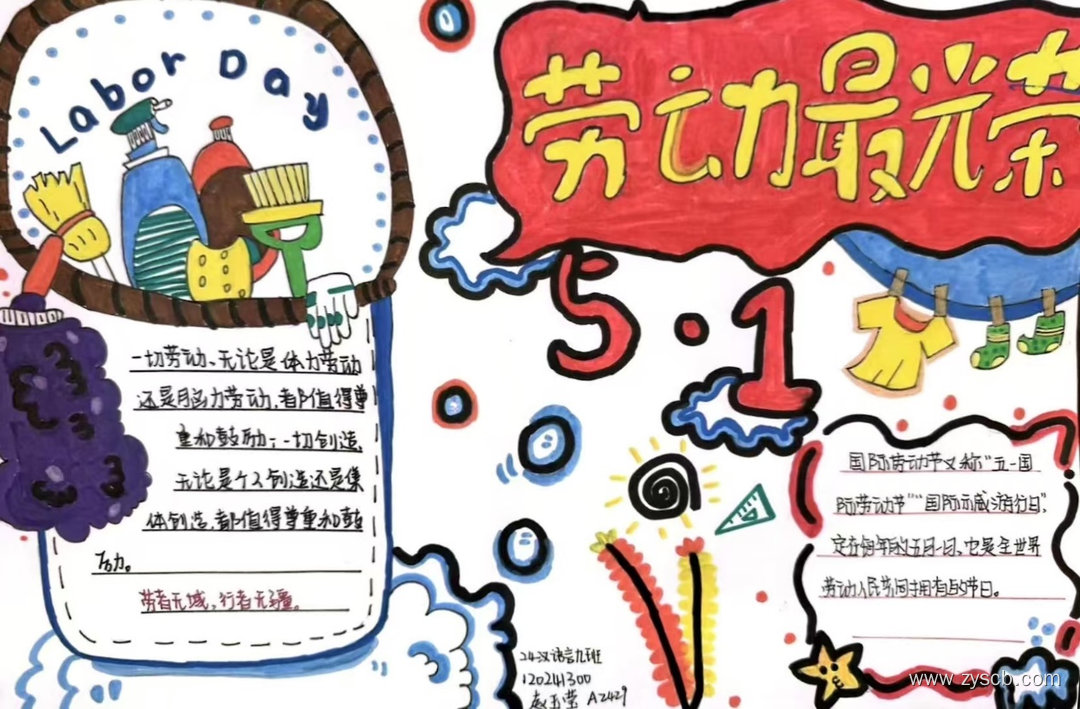 Labor Day
劳动最光荣
5·1
一切劳动、无论是体力劳动
还是脑力劳动,都值得尊
重和鼓励;一切创造,
无论是个人创造还是集
体创造,都值得尊重和鼓
励。
劳者无域,行者无疆。
国际劳动节又称"五一国
际劳动节""国际示威游行日",
定在每年的五月一日、它是全世界
劳动人民共同拥有的节日。
24汉语言九班
120241300
A2429
www.zyscb.com